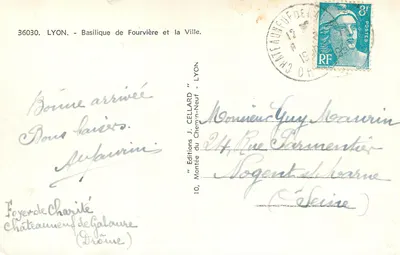 36030. LYON. - Basilique de Fourvière et la Ville.
Bonne arrivée
Bons baisers.
Foyer de Charité
Châteauneuf de Galaure
(Drôme)
" Editions J. CELLARD "
10, Montée du Chemin-Neuf - LYON
8F
POSTES
RF
CHATEAUNEUF DE
Monsieur Guy Maurin
24, Rue Parmentier
Nogent s/ Marne
(Seine)